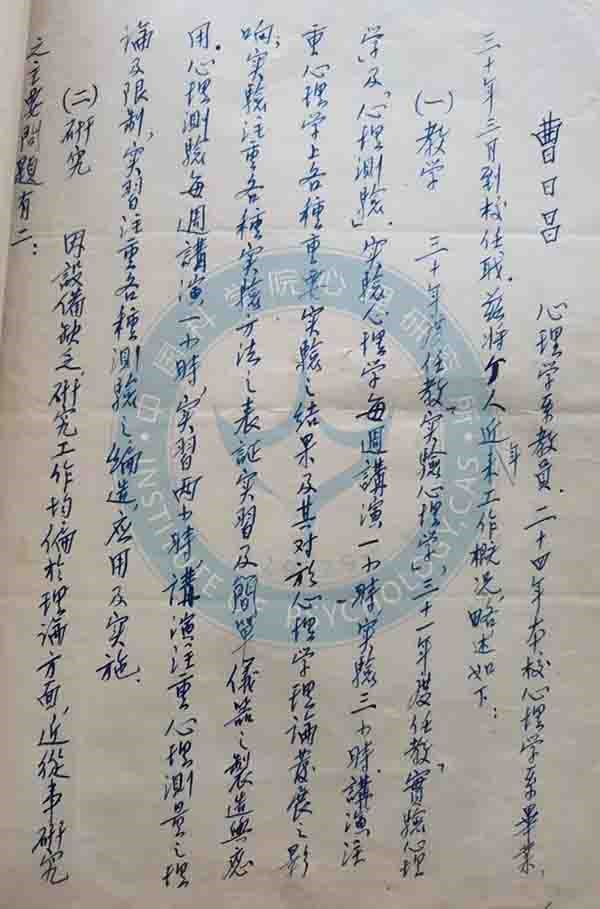 曹日昌　心理学系教員．二十四年本校心理学系畢業，
三十年三月到校任職．茲將个人近年来工作概況，略述如下：
(一) 教学　三十年度任教「实驗心理学」，三十一年度任教「實驗心理
学」及「心理測驗」．实驗心理学每週講演一小時，实驗三小時．講演注
重心理学上各種重要实驗之結果及其対於心理学理論發展之影
响；实驗注重各種实驗方法之表証实習及簡單儀器之製造與應
用．心理測驗每週講演一小時，实習两小時，講演注重心理測量之理
論及限制，实習注重各種測驗之編造，应用及实施．
(二) 研究　因設備缺乏，研究工作均偏於理論方面，近從事研究
之主要問題有二：
中国科学院心理研究所
INSTITUTE OF PSYCHOLOGY,CAS